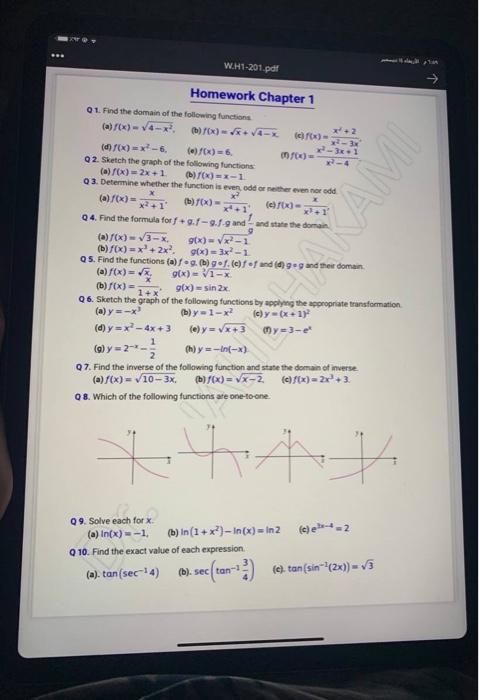 W.H1-201.pdf
Homework Chapter 1
Q 1. Find the domain of the following functions.
(a) f(x) = √(4−x²), (b) f(x) = √x + √(4−x), (c) f(x) = (x² + 2)/(x² − 3x),
(d) f(x) = x² − 6, (e) f(x) = 6, (f) f(x) = (x² − 3x + 1)/(x² − 4)
Q 2. Sketch the graph of the following functions:
(a) f(x) = 2x + 1 (b) f(x) = x − 1
Q 3. Determine whether the function is even, odd or neither even nor odd.
(a) f(x) = x/(x² + 1), (b) f(x) = x²/(x⁴ + 1), (c) f(x) = x/(x³ + 1)
Q 4. Find the formula for f + g, f − g, f.g and f/g and state the domain.
(a) f(x) = √(3 − x), g(x) = √(x² − 1)
(b) f(x) = x³ + 2x², g(x) = 3x² − 1
Q 5. Find the functions (a) f ∘ g, (b) g ∘ f, (c) f ∘ f and (d) g ∘ g and their domain.
(a) f(x) = √x, g(x) = ∛(1 − x)
(b) f(x) = x/(1 + x), g(x) = sin 2x
Q 6. Sketch the graph of the following functions by applying the appropriate transformation.
(a) y = −x³ (b) y = 1 − x² (c) y = (x + 1)²
(d) y = x² − 4x + 3 (e) y = √(x + 3) (f) y = 3 − eˣ
(g) y = 2⁻ˣ − 1/2 (h) y = −ln(−x)
Q 7. Find the inverse of the following function and state the domain of inverse.
(a) f(x) = √(10 − 3x), (b) f(x) = √(x − 2), (c) f(x) = 2x³ + 3.
Q 8. Which of the following functions are one-to-one.
Q 9. Solve each for x.
(a) ln(x) = −1, (b) ln(1 + x²) − ln(x) = ln 2 (c) e³ˣ⁻⁴ = 2
Q 10. Find the exact value of each expression.
(a). tan(sec⁻¹ 4) (b). sec(tan⁻¹ 3/4) (c). tan(sin⁻¹(2x)) = √3